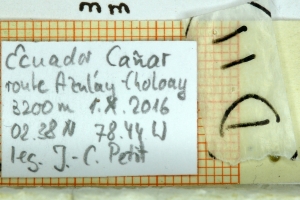 mm
Ecuador Cañar
route Azuláy-Choloay
3200m 1.X.2016
02.38 N 78.44 W
leg. J.-C. Petit
D11